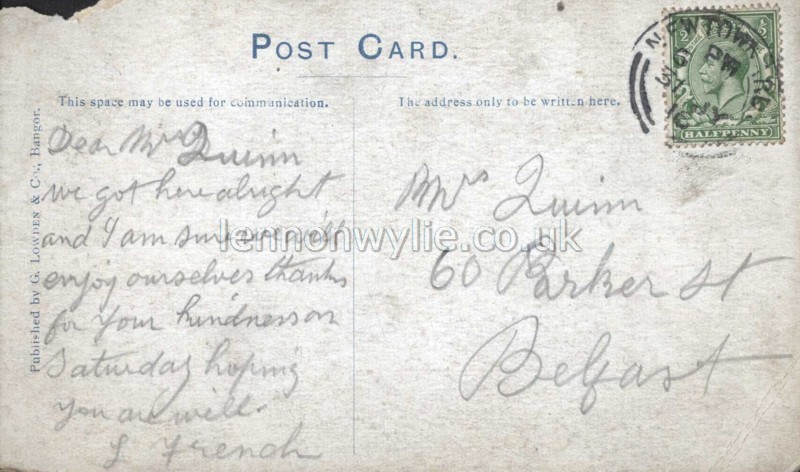 POST CARD.
This space may be used for communication.
The address only to be written here.
Published by G. Lowden & Co., Bangor.
Dear Mrs Quinn
we got here alright
and I am sure we will
enjoy ourselves thanks
for your kindness on
Saturday hoping
you are well.
L French
Mrs Quinn
60 Parker St
Belfast
lennonwylie.co.uk
NEWTOWN
HALFPENNY